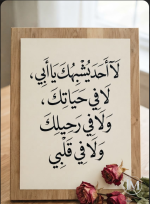 لَا أَحَد يُشْبِهُكَ يَا أَبِي،
لَا فِي حَيَاتِكَ،
وَلَا فِي رَحِيلِكَ
وَلَا فِي قَلْبِي